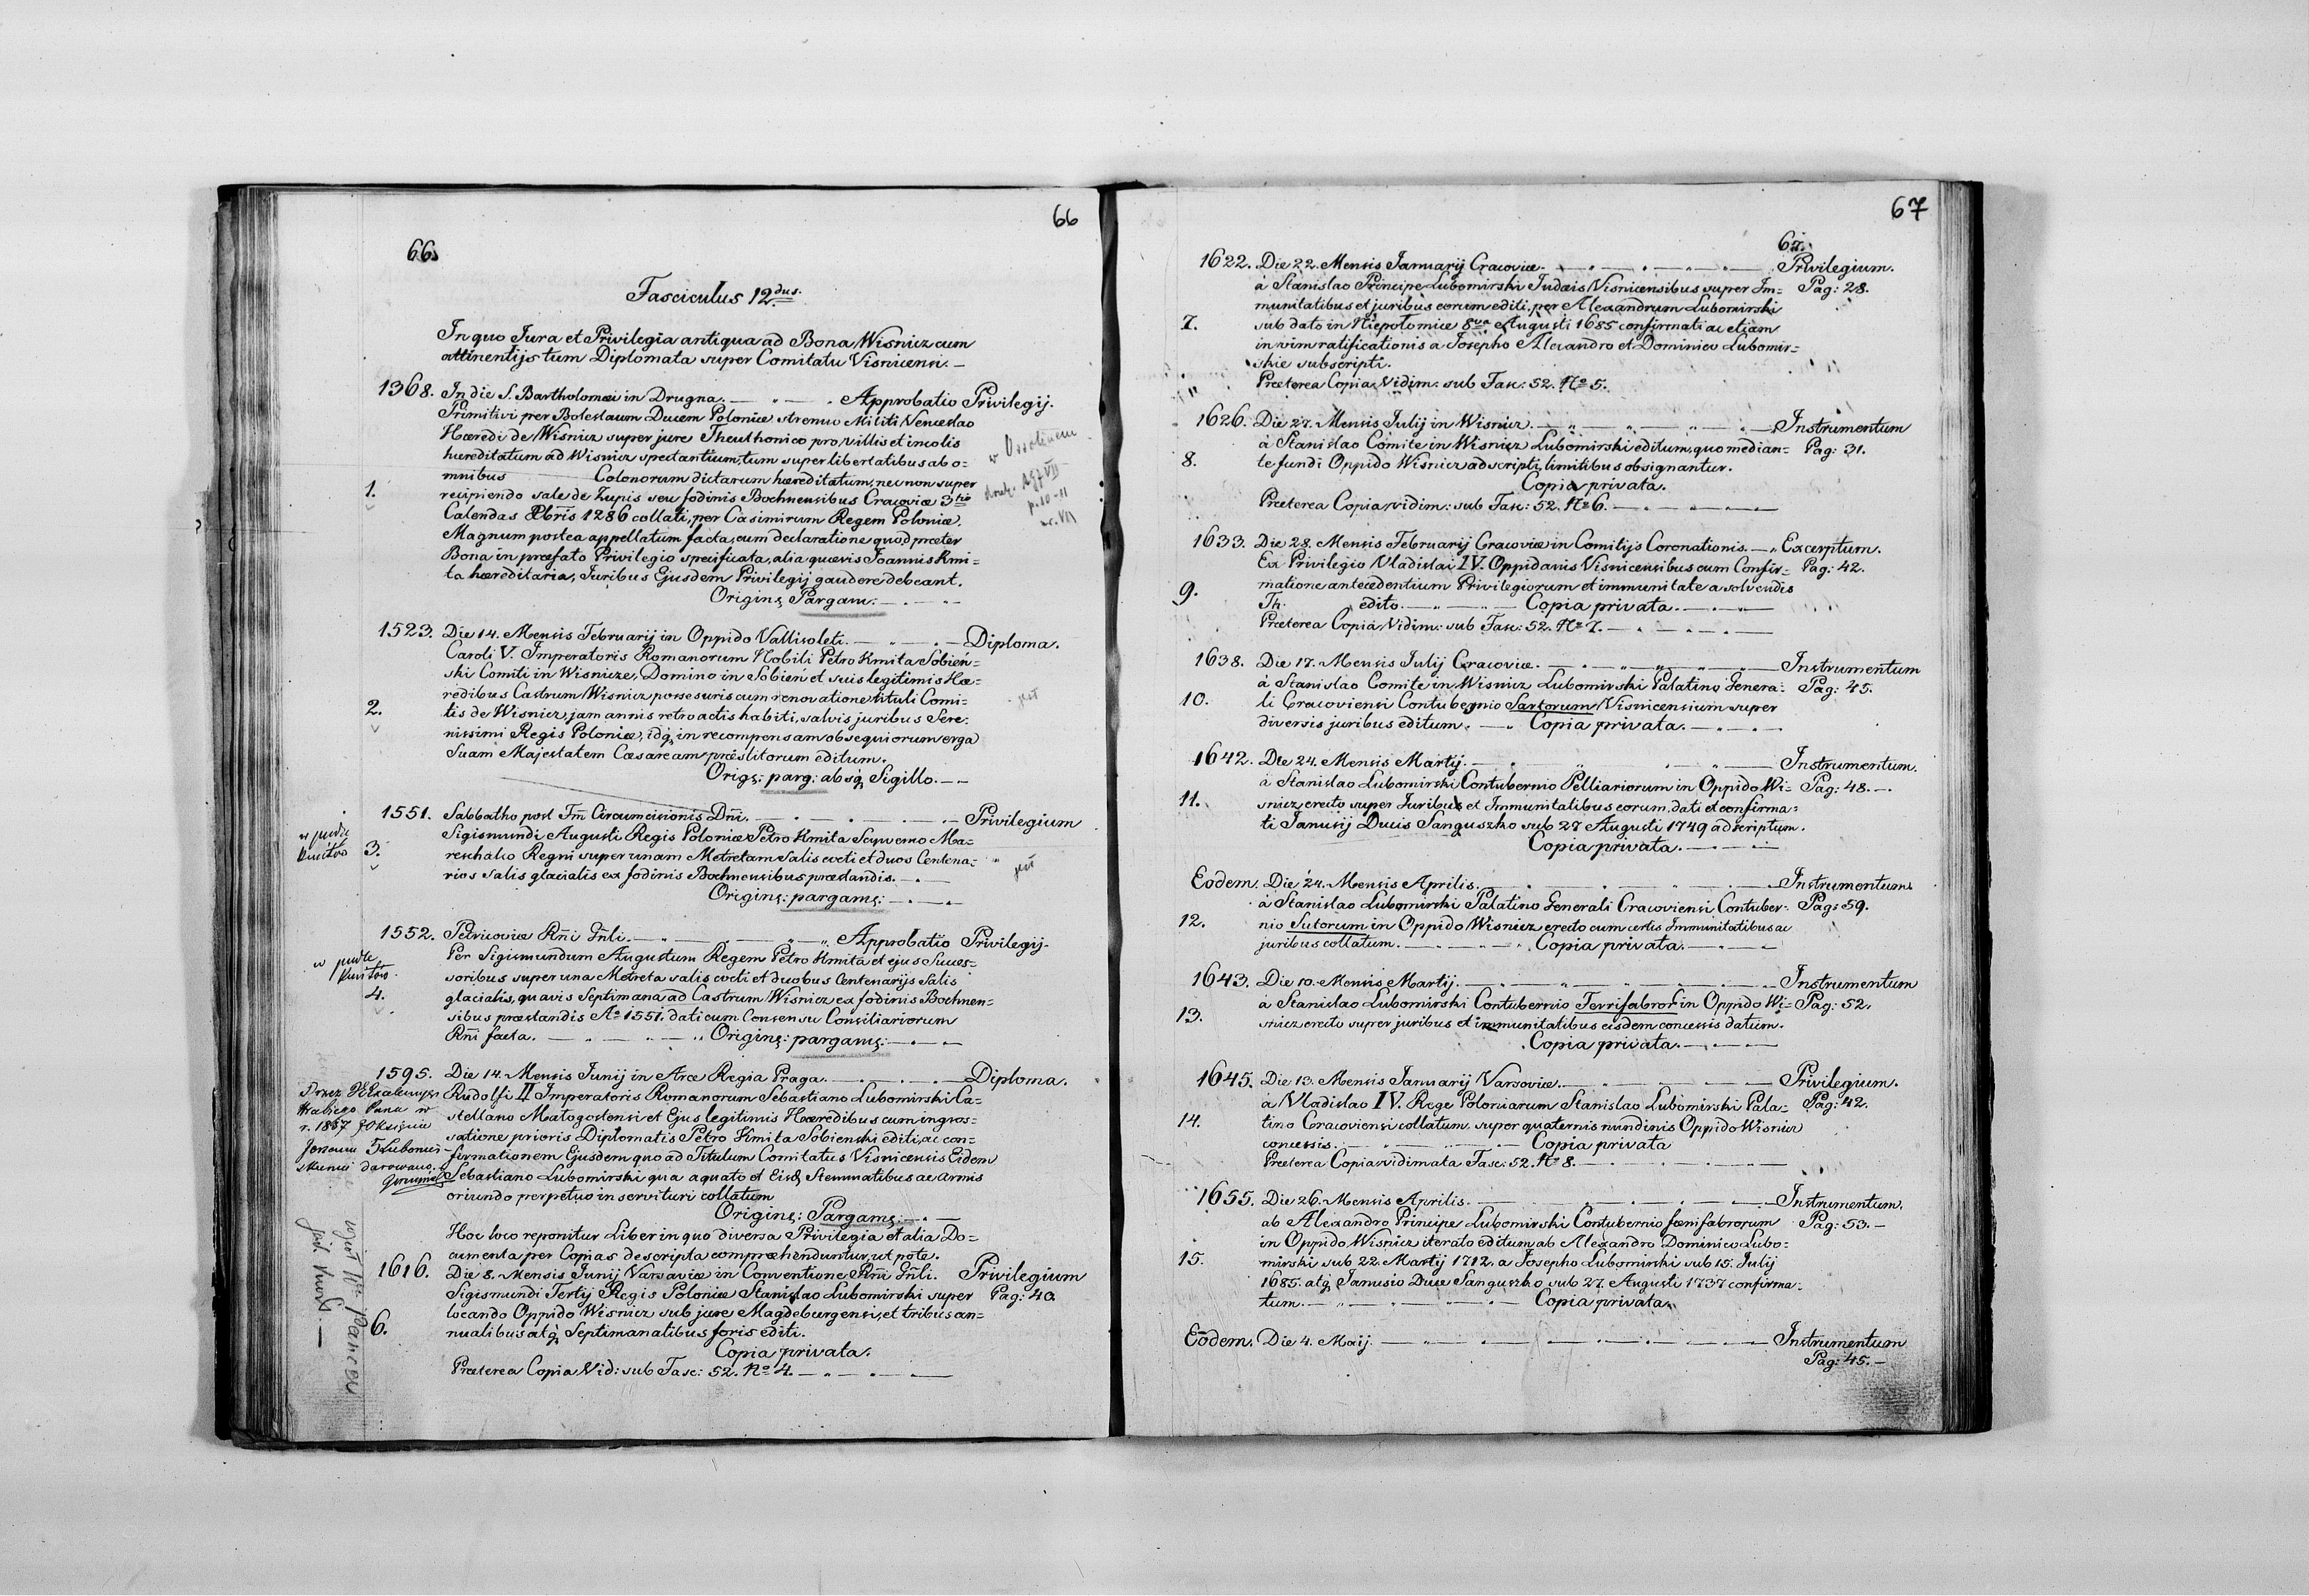 66
66.
Fasciculus 12dus.
In quo Jura et Privilegia antiqua ad Bona Wisnicz cum
attinentijs tum Diplomata super Comitatu Visnicensi. —
1368. In die S. Bartholomæi in Drugna. — Approbatio Privilegij.
Primitivi per Boleslaum Ducem Poloniæ strenuo Militi Venceslao
Hæredi de Wisnicz super jure Theuthonico pro villis et incolis
hæreditatum ad Wisnicz spectantium, tum super libertatibus ab o=
mnibus Colonorum dictarum hæreditatum, nec non super
1. recipiendo sale de Zupis seu fodinis Bochnensibus Cracoviæ 3tio
Calendas Xbris 1286 collati, per Casimirum Regem Poloniæ,
Magnum postea appellatum facta, cum declaratione quod præter
Bona in præfato Privilegio specificata, alia quævis Joannis Kmi=
ta hæreditaria, Juribus Ejusdem Privilegij gaudere debeant.
Origin: Pargam: —
w Ossolineum
p. 10-11
nr. VII
1523. Die 14. Mensis Februarij in Oppido Vallisoleti. — Diploma.
Caroli V. Imperatoris Romanorum Nobili Petro Kmita Sobień=
ski Comiti in Wisnicze, Domino in Sobień et suis legitimis Hæ=
redibus Castrum Wisnicz possessuris cum renovatione tituli Comi=
2. tis de Wisnicz, jam annis retroactis habiti, salvis juribus Sere=
nissimi Regis Poloniæ, idq, in recompensam obsequiorum erga
Suam Majestatem Cæsaream præstitorum editum.
Orig: parg: absq, Sigillo. —
jest
1551. Sabbatho post Fm Circumcisionis Dni. — Privilegium
Sigismundi Augusti Regis Poloniæ Petro Kmita Supremo Ma=
w pudle
Kmitów
3. reschalco Regni super unam Metretam Salis cocti et duos Centena=
rios salis glacialis ex fodinis Bochnensibus præstandis. —
Origin: pargam: —
jest
1552. Petricoviæ Rni Gnli. — Approbatio Privilegij.
Per Sigismundum Augustum Regem Petro Kmita et ejus Succes=
w pudle
Kmitów.
soribus super una Metreta salis cocti et duobus Centenarijs Salis
4. glacialis, quavis Septimana ad Castrum Wisnicz ex fodinis Bochnen=
sibus præstandis Ao 1551. dati cum Consensu Consiliariorum
Rni facta. — Origin: pargam: —
1595. Die 14. Mensis Junij in Arce Regia Praga. — Diploma.
Rudolfi II Imperatoris Romanorum Sebastiano Lubomirski Ca=
stellano Małogostensi et Ejus legitimis Hæredibus cum ingros=
satione prioris Diplomatis Petro Kmita Sobienski editi, ac con=
formationem Ejusdem quo ad Titulum Comitatus Visnicensis Eidem
Sebastiano Lubomirski qua aquato et Eisd Stemmatibus ac armis
oriundo perpetuo inservituri collatum
Origin: Pargam: —
r. 1857
darowano.
Hoc loco reponitur Liber in quo diversa Privilegia et alia Do=
cumenta per Copias descripta compræhenduntur, ut pote.
1616. Die 8. Mensis Junij Varsaviæ in Conventione Rni Gnli. Privilegium
Sigismundi Tertij Regis Poloniæ Stanislao Lubomirski super Pag: 40.
locando Oppido Wisnicz sub jure Magdeburgensi, et tribus an=
6. nualibus atq, Septimanatibus foris editi.
Copia privata.
Præterea Copia Vid: sub Fasc: 52. No 4. —
67
67.
1622. Die 22. Mensis Januarij Cracoviæ. — Privilegium.
à Stanislao Principe Lubomirski Judæis Visnicensibus super Im= Pag: 28.
munitatibus et juribus eorum editi, per Alexandrum Lubomirski
7. sub dato in Niepołomice 8va Augusti 1685 confirmati ac etiam
in vim ratificationis a Josepho Alexandro et Dominico Lubomir=
skie subscripti.
Præterea Copia Vidim: sub Fasc: 52. No 5.
1626. Die 27. Mensis Julij in Wisnicz. — Instrumentum
à Stanislao Comite in Wisnicz Lubomirski editum, quo median= Pag: 31.
8. te fundi Oppido Wisnicz adscripti, limitibus obsignantur.
Copia privata.
Præterea Copia vidim: sub Fasc: 52. No 6. —
1633. Die 28. Mensis Februarij Cracoviæ in Comitijs Coronationis. — Excerptum.
Ex Privilegio Vladislai IV. Oppidanis Visnicensibus cum Confir= Pag: 42.
9. matione antecedentium Privilegiorum et immunitate a solvendis
Th. edito. — Copia privata. —
Præterea Copia Vidim: sub Fasc: 52. No 7. —
1638. Die 17. Mensis Julij Cracoviæ. — Instrumentum
à Stanislao Comite in Wisnicz Lubomirski Palatino Genera= Pag: 45.
10. li Cracoviensi Contubernio Sartorum Visnicensium super
diversis juribus editum. — Copia privata. —
1642. Die 24. Mensis Martij. — Instrumentum.
à Stanislao Lubomirski Contubernio Pelliariorum in Oppido Wi= Pag: 48. —
11. snicz, erecto super Juribus et Immunitatibus eorum dati et confirma=
ti Janusij Ducis Sanguszko sub 27 Augusti 1749 adscriptum.
Copia privata. —
Eodem. Die 24. Mensis Aprilis. — Instrumentum
à Stanislao Lubomirski Palatino Generali Cracoviensi Contuber= Pag: 59.
12. nio Sutorum in Oppido Wisnicz erecto cum certis Immunitatibus ac
juribus collatum. — Copia privata. —
1643. Die 10. Mensis Martij. — Instrumentum
à Stanislao Lubomirski Contubernio Ferrifabror in Oppido Wi= Pag: 52.
13. snicz, erecto super juribus et immunitatibus eisdem concessis datum.
Copia privata. —
1645. Die 13. Mensis Januarij Varsoviæ. — Privilegium.
à Vladislao IV. Rege Poloniarum Stanislao Lubomirski Pala= Pag: 42.
14. tino Cracoviensi collatum super quaternis nundinis Oppido Wisnicz
concessis. — Copia privata
Præterea Copia vidimata Fasc: 52. No 8. —
1655. Die 26. Mensis Aprilis. — Instrumentum.
ab Alexandro Principe Lubomirski Contubernio fœnifabrorum Pag: 53. —
in Oppido Wisnicz iterato editum ab Alexandro Dominico Lubo=
15. mirski sub 22. Martij 1712. a Josepho Lubomirski sub 15. Julij
1685. atq, Janusio Duce Sanguszko sub 27. Augusti 1737 confirma=
tum. — Copia privata.
Eodem. Die 4. Maij. — Instrumentum
Pag: 45. —